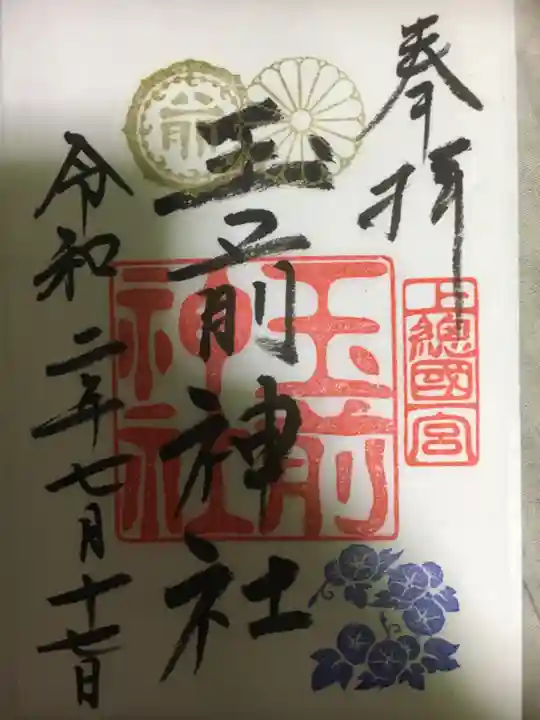 奉拝
上總國一宮
玉前神社
玉前神社
前
令和二年七月十七日